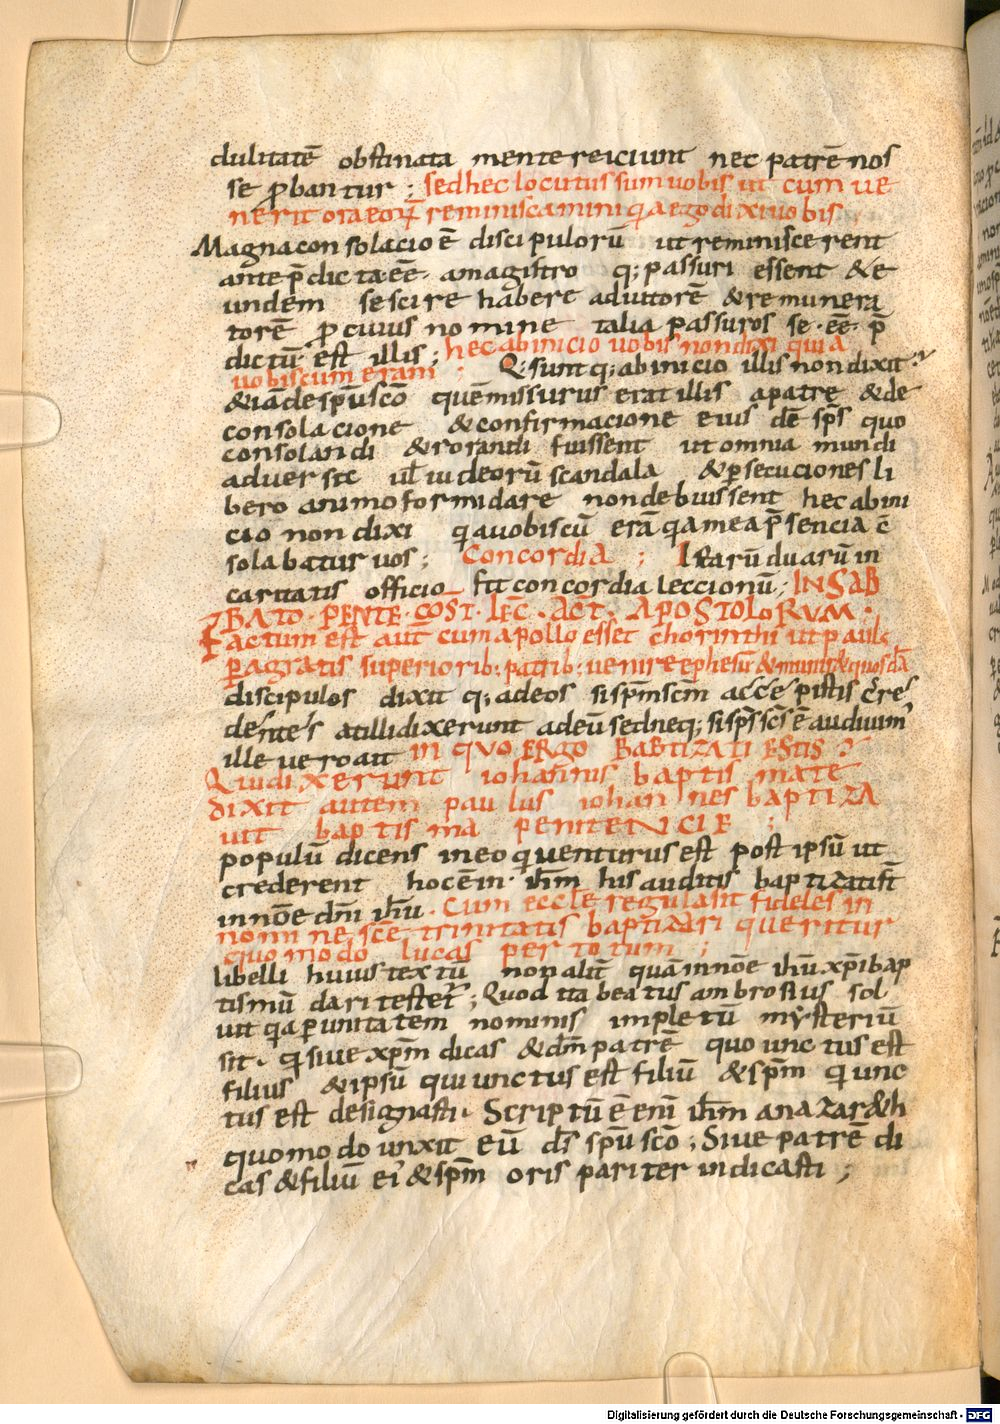 dulitatē obstinata mente reiciunt nec patrē nos
se ꝓbantur ; sed hec locutus sum uobis ut cum ue
nerit ora eorꝝ reminiscamini qa ego dixi uobis.
Magna consolacio ē discipulorū ut reminiscerent
ante p̄dicta eē. a magistro q; passuri essent & e
undem se scire habere adiutorē & remunera
torē ꝓ cuius nomine talia passuros se . eē . p̄
dictū . est illis ; hec ab inicio uobis non dixi quia
uobiscum eram ; Q; sunt q; ab inicio illis non dixit ?
& ia de spū scō quē missurus erat illis a patre & de
consolacione & confirmacione eius dē sps quo
consolandi & rorandi fuissent ut omnia mundi
aduersitc ul iudeorū scandala & ꝑsecuciones li
bero animo formidare non debuissent hec ab ini
cio non dixi qa uobiscū erā qa mea p̄sencia c̄
solabatur uos ; Concordia ; Istarū duarū in
caritatis officio fit concordia leccionū ; IN SAB
BATO . PENTECOST . LEC̄ . ACT . APOSTOLORUM .
Factum est aut cum apollo esset chorinthi ut paulꝰ
ꝑagratis superiorib; patrib; ueniret ephesū & inuenir& quosdā
discipulos dixit q; ad eos si spm scm accepistis cre
dentes at illi dixerunt ad eū sed neq; si sps scs ē audiuim
ille uero ait in quo ergo baptizati estis ?
Qui dixerunt iohannis baptismate
dixit autem paulus iohannes baptiza
uit baptisma penitencie ;
populū dicens in eo qi uenturus est post ipsū ut
crederent hoc ē in . ihm his auditis baptizati st̄
in nōe dm̄ ihū . Cum eccle regula sit fideles in
nomine scē trinitatis baptizari queritur
quomodo lucas per totum ;
libelli huius textū non alit̄ quā in nōe ihū xp̄i bap
tismū dari testet̄ ; Quod ita beatus ambrosius sol
uit qa ꝑ unitatem nominis impletū mysteriū
sit . qi siue xp̄m dicas & dm̄ patrē quo unctus est
filius & ipsū qui unctus est filiū & spm̄ qi unc
tus est designasti . Scriptū ē enī ihm̄ a nazar&h
quomodo unxit eū ds̄ spū scō ; Siue patrē di
cas & filiū ei & spm̄ oris pariter indicasti ;
Digitalisierung gefördert durch die Deutsche Forschungsgemeinschaft - DFG